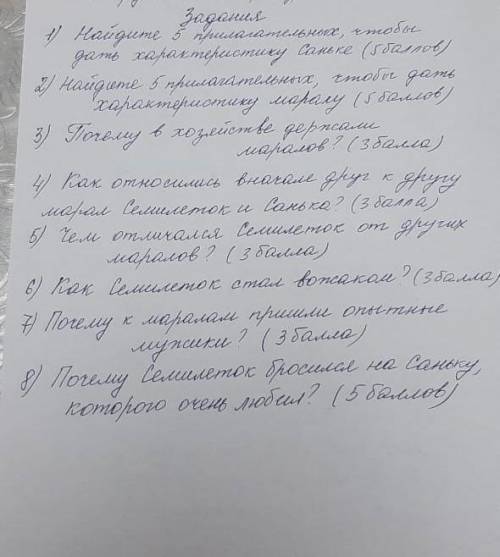 Задания
1) Найдите 5 прилагательных, чтобы
дать характеристику Саньке (5 баллов)
2) Найдите 5 прилагательных, чтобы дать
характеристику маралу (5 баллов)
3) Почему в хозяйстве держали
маралов? (3 балла)
4) Как относились вначале друг к другу
марал Семилеток и Санька? (3 балла)
5) Чем отличался Семилеток от других
маралов? (3 балла)
6) Как Семилеток стал вожаком? (3 балла)
7) Почему к маралам пришли опытные
мужики? (3 балла)
8) Почему Семилеток бросился на Саньку,
которого очень любил? (5 баллов)